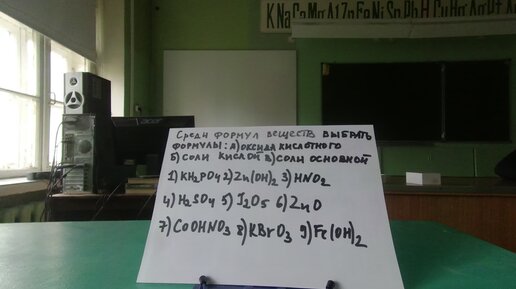 K Na Ca Mg Al Zn Fe Ni Sn Pb H Cu Hg Ag Pt Au
acer
Среди формул веществ выбрать
формулы: а) оксида кислотного
б) соли кислой в) соли основной
1) KH₂PO₄ 2) Zn(OH)₂ 3) HNO₂
4) H₂SO₄ 5) J₂O₅ 6) ZnO
7) CoOHNO₃ 8) KBrO₃ 9) Fe(OH)₂